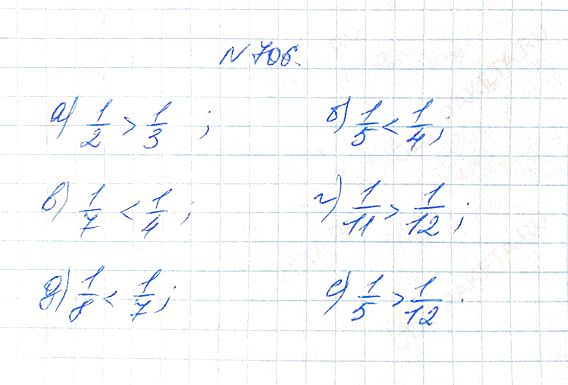 N 706.
а) 1/2 > 1/3 ; б) 1/5 < 1/4 ;
в) 1/7 < 1/4 ; г) 1/11 > 1/12 ;
д) 1/8 < 1/7 ; е) 1/5 > 1/12 .